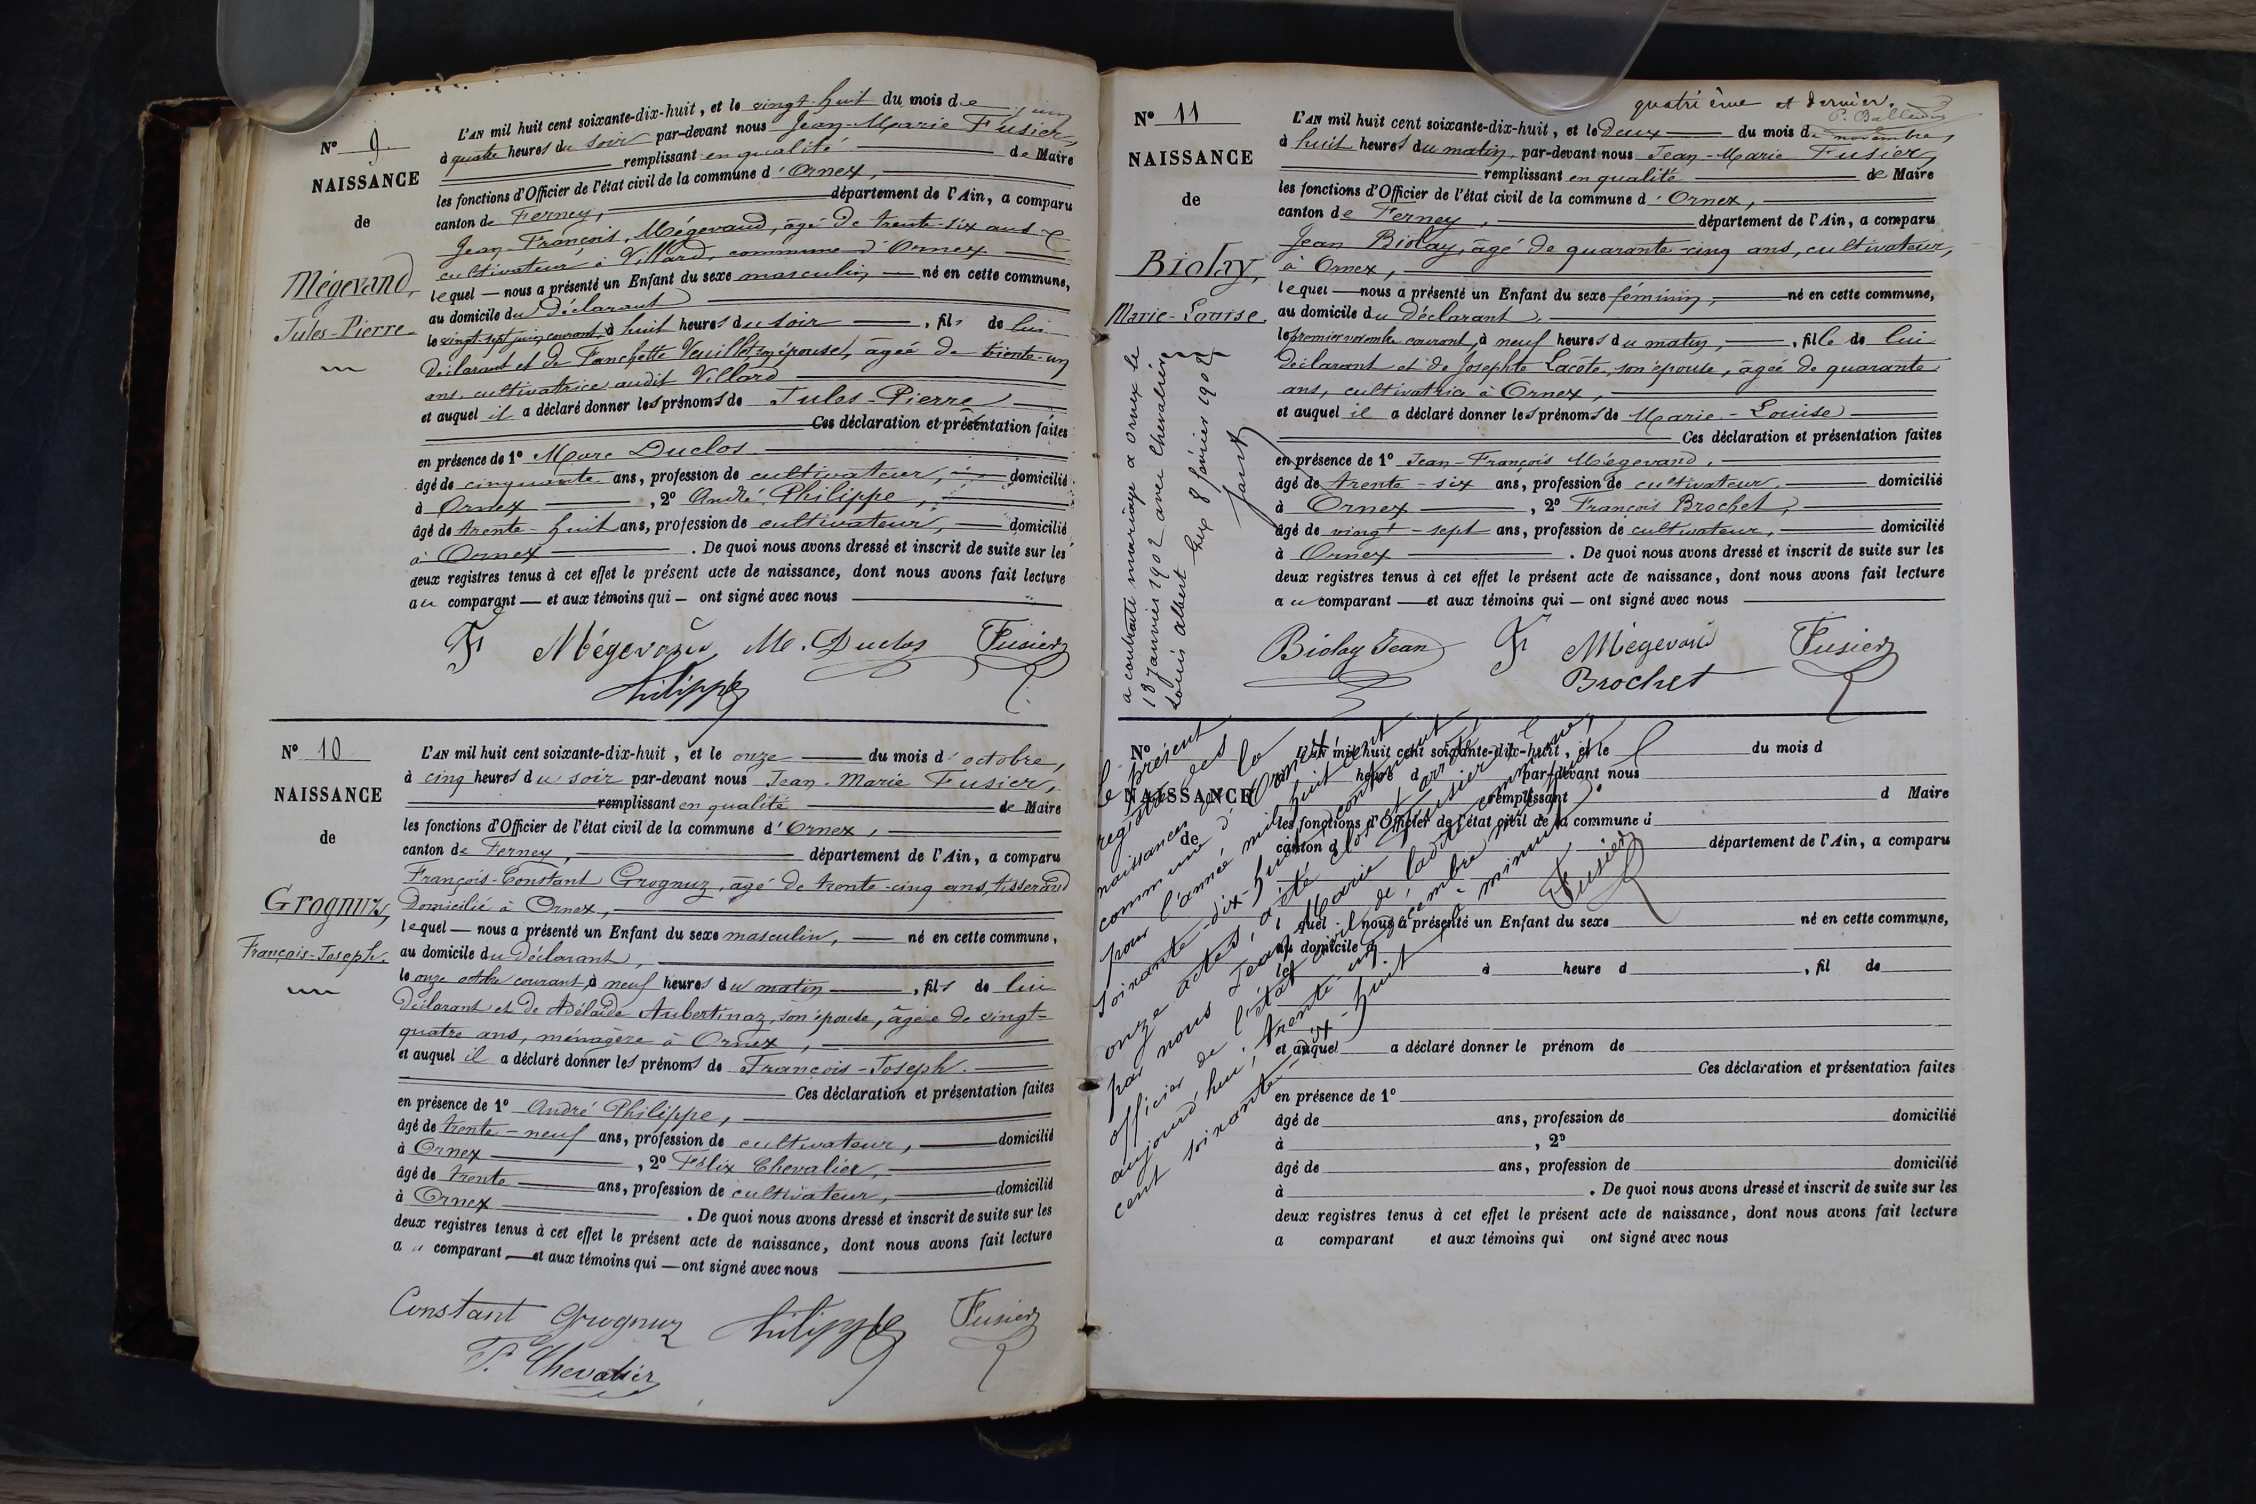 N° 9
NAISSANCE
de
Mégevand,
Jules-Pierre
L'AN mil huit cent soixante-dix-huit, et le vingt-huit du mois de juin
à quatre heures du soir par-devant nous Jean-Marie Fusier,
remplissant en qualité de Maire
les fonctions d'Officier de l'état civil de la commune d'Ornex,
canton de Ferney, département de l'Ain, a comparu
Jean-François Mégevand, âgé de trente-six ans
cultivateur à Villard, commune d'Ornex
lequel — nous a présenté un Enfant du sexe masculin, — né en cette commune,
au domicile du Déclarant
le vingt-sept juin courant, à huit heures du soir, fils de lui
déclarant et de Fanchette Veuillet, son épouse, âgée de trente-un
ans, cultivatrice audit Villard
et auquel il a déclaré donner les prénoms de Jules-Pierre
Ces déclaration et présentation faites
en présence de 1° Marc Duclos
âgé de cinquante ans, profession de cultivateur, domicilié
à Ornex, 2° André Philippe,
âgé de trente-huit ans, profession de cultivateur, domicilié
à Ornex. De quoi nous avons dressé et inscrit de suite sur les
deux registres tenus à cet effet le présent acte de naissance, dont nous avons fait lecture
au comparant — et aux témoins qui — ont signé avec nous
F Mégevand M. Duclos Fusier
Philippe
N° 10
NAISSANCE
de
Grognuz,
François-Joseph.
L'AN mil huit cent soixante-dix-huit, et le onze du mois d'octobre,
à cinq heures du soir par-devant nous Jean-Marie Fusier,
remplissant en qualité de Maire
les fonctions d'Officier de l'état civil de la commune d'Ornex,
canton de Ferney, département de l'Ain, a comparu
François-Constant Grognuz, âgé de trente-cinq ans, tisserand
domicilié à Ornex,
lequel — nous a présenté un Enfant du sexe masculin, — né en cette commune,
au domicile du déclarant,
le onze octobre courant, à neuf heures du matin, fils de lui
déclarant et de Adélaïde Aubertinaz, son épouse, âgée de vingt-
quatre ans, ménagère à Ornex,
et auquel il a déclaré donner les prénoms de François-Joseph.
Ces déclaration et présentation faites
en présence de 1° André Philippe,
âgé de trente-neuf ans, profession de cultivateur, domicilié
à Ornex, 2° Félix Chevalier,
âgé de trente ans, profession de cultivateur, domicilié
à Ornex. De quoi nous avons dressé et inscrit de suite sur les
deux registres tenus à cet effet le présent acte de naissance, dont nous avons fait lecture
au comparant, — et aux témoins qui — ont signé avec nous
Constant Grognuz Philippe Fusier
F. Chevalier
quatrième et dernier.
N° 11
NAISSANCE
de
Biolay,
Marie-Louise.
a contracté mariage à Ornex le
18 janvier 1902 avec Chevalier
Louis Albert Gex 8 février 1902
L'AN mil huit cent soixante-dix-huit, et le Deux du mois de novembre,
à huit heures du matin, par-devant nous Jean-Marie Fusier,
remplissant en qualité de Maire
les fonctions d'Officier de l'état civil de la commune d'Ornex,
canton de Ferney, département de l'Ain, a comparu
Jean Biolay, âgé de quarante-cinq ans, cultivateur,
à Ornex,
lequel — nous a présenté un Enfant du sexe féminin, né en cette commune,
au domicile du déclarant,
le premier novembre courant, à neuf heures du matin, fille de lui
déclarant et de Josephte Lacôte, son épouse, âgée de quarante
ans, cultivatrice à Ornex,
et auquel il a déclaré donner les prénoms de Marie-Louise
Ces déclaration et présentation faites
en présence de 1° Jean-François Mégevand,
âgé de trente-six ans, profession de cultivateur, domicilié
à Ornex, 2° François Brochet,
âgé de vingt-sept ans, profession de cultivateur, domicilié
à Ornex. De quoi nous avons dressé et inscrit de suite sur les
deux registres tenus à cet effet le présent acte de naissance, dont nous avons fait lecture
au comparant — et aux témoins qui — ont signé avec nous
Biolay Jean F Mégevand Fusier
Brochet
N°
NAISSANCE
de
L'AN mil huit cent soixante-dix-huit, et le du mois d
heure d par-devant nous
remplissant d Maire
les fonctions d'Officier de l'état civil de la commune d
canton d département de l'Ain, a comparu
l quel nous a présenté un Enfant du sexe né en cette commune,
au domicile d
le à heure d, fil de
et auquel a déclaré donner le prénom de
Ces déclaration et présentation faites
en présence de 1°
âgé de ans, profession de domicilié
à, 2°
âgé de ans, profession de domicilié
à. De quoi nous avons dressé et inscrit de suite sur les
deux registres tenus à cet effet le présent acte de naissance, dont nous avons fait lecture
a comparant et aux témoins qui ont signé avec nous
Le présent
registre des
naissances de la
commune d'Ornex
pour l'année mil huit cent
soixante-dix-huit contenant
onze actes, a été clos et arrêté
par nous Jean Marie Fusier
officier de l'état civil de ladite commune
aujourd'hui, trente-un décembre mil huit
cent soixante-dix-huit à minuit.
Fusier